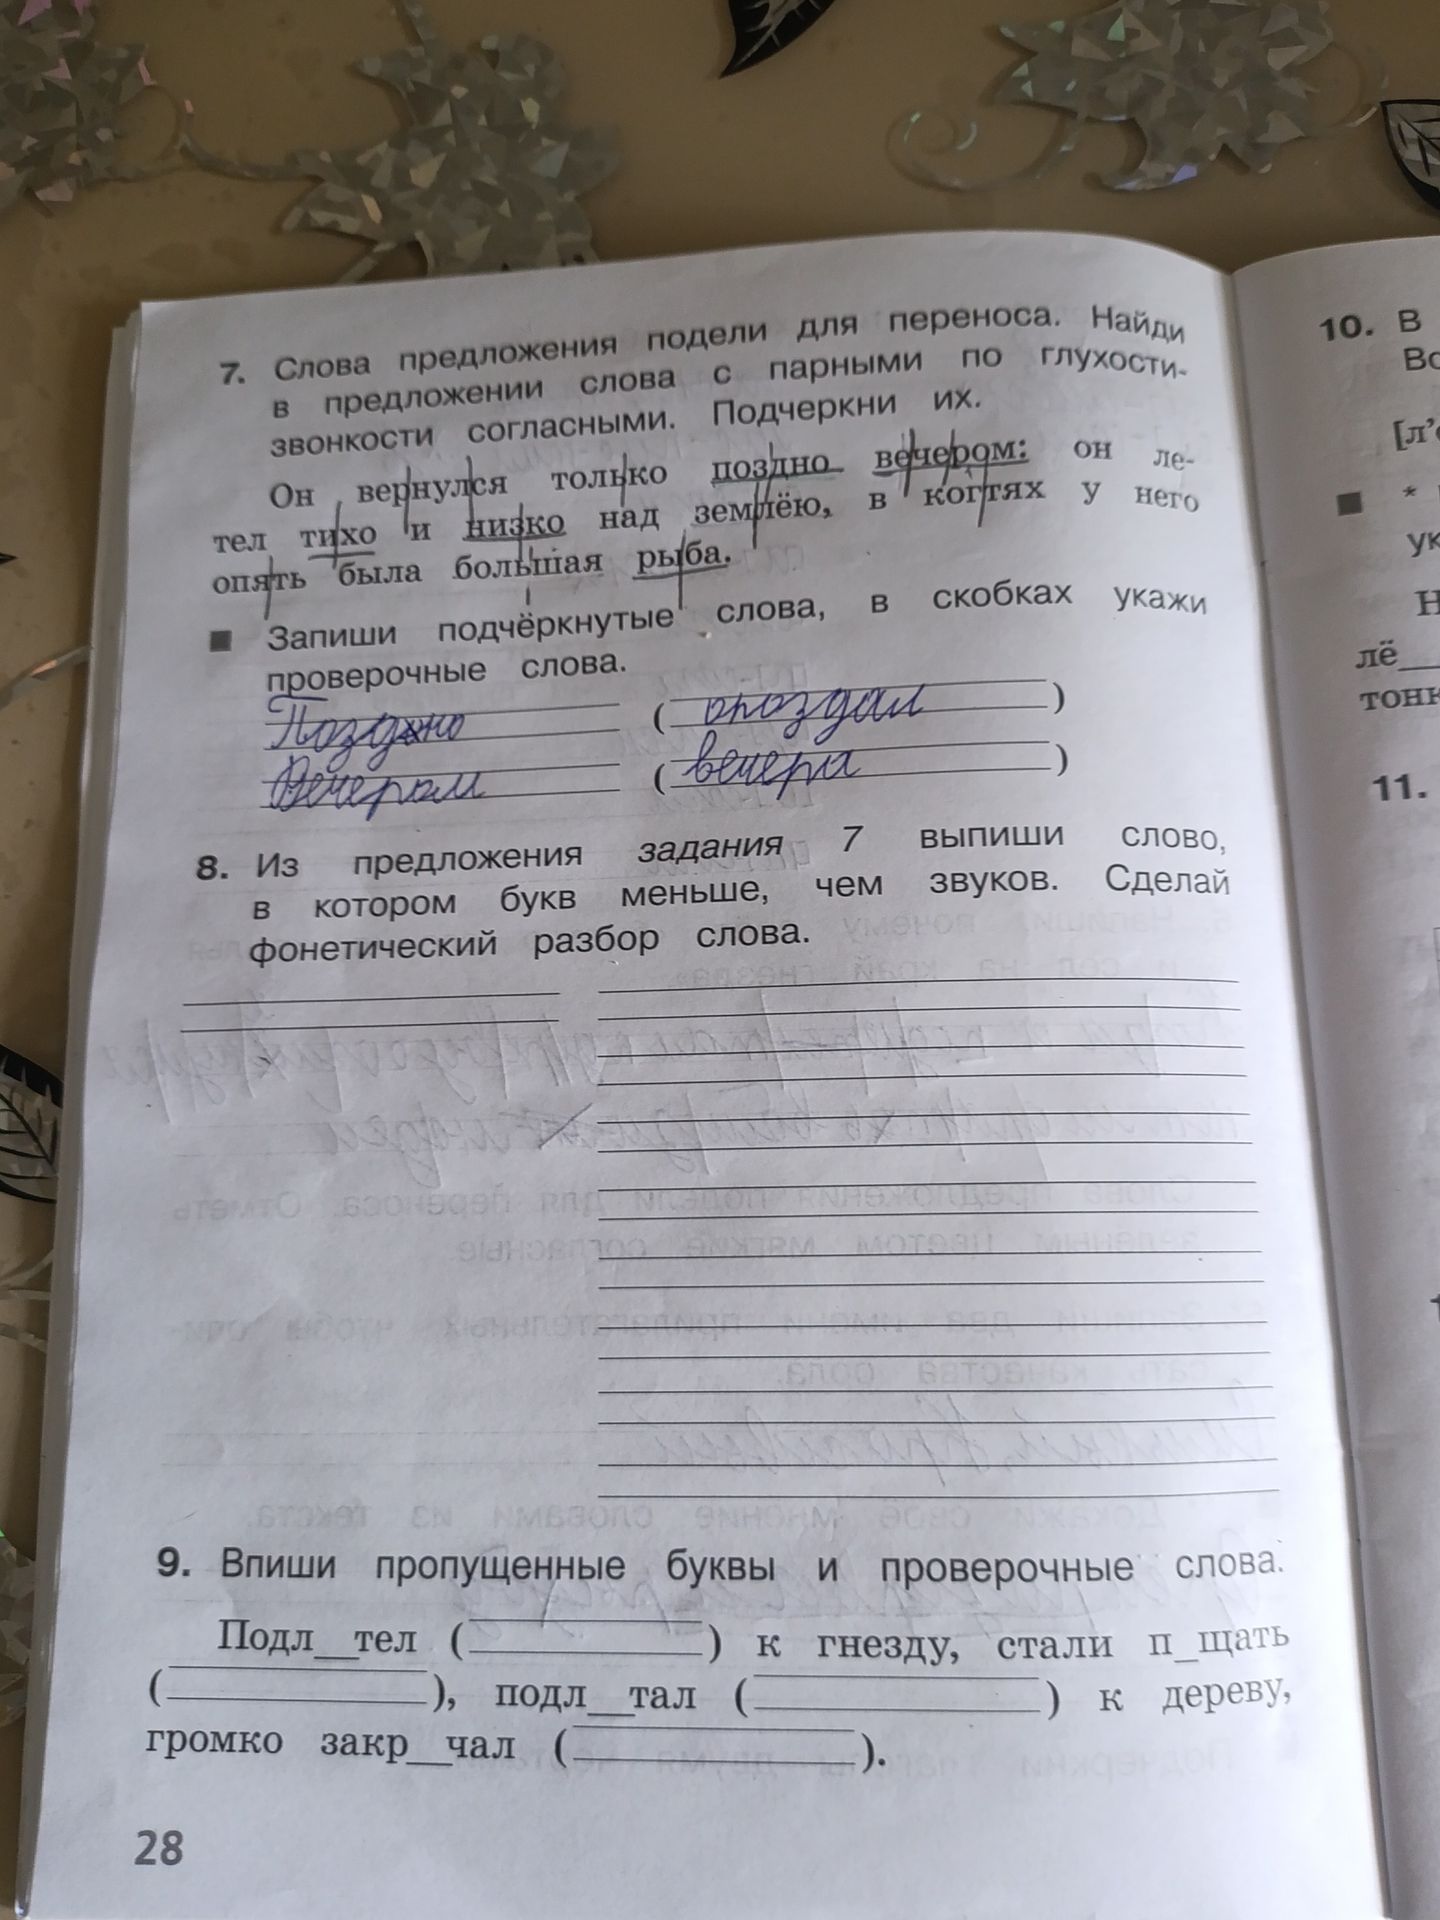 7. Слова предложения подели для переноса. Найди
в предложении слова с парными по глухости-
звонкости согласными. Подчеркни их.
Он вернулся только поздно вечером: он ле-
тел тихо и низко над землёю, в когтях у него
опять была большая рыба.
■ Запиши подчёркнутые слова, в скобках укажи
проверочные слова.
Поздно (опоздал)
Вечером (вечера)
8. Из предложения задания 7 выпиши слово,
в котором букв меньше, чем звуков. Сделай
фонетический разбор слова.
9. Впиши пропущенные буквы и проверочные слова.
Подл__тел (            ) к гнезду, стали п_щать
(            ), подл__тал (            ) к дереву,
громко закр__чал (            ).
28
10. В
Вс
[л’
■ *
ук
Н
лё__
тонк
11.